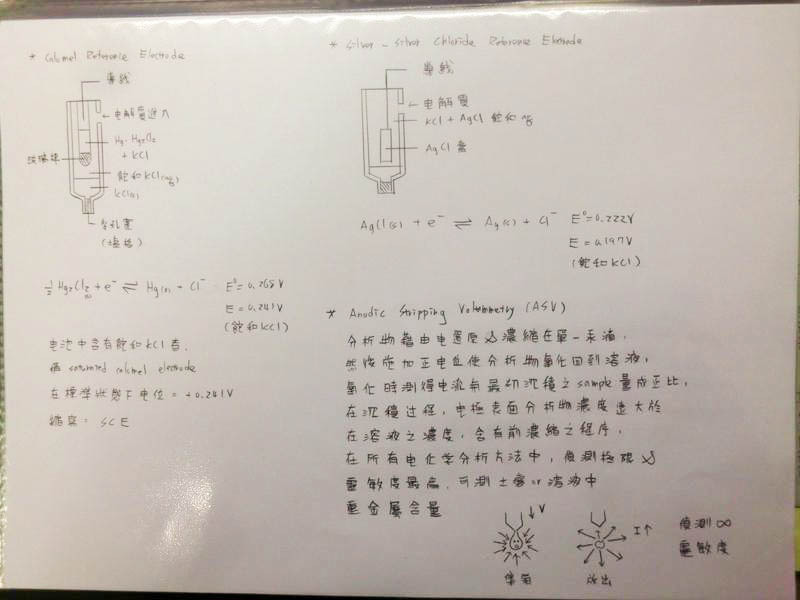 * Calomel Reference Electrode
導線
← 电解質進入
Hg. Hg2Cl2
+ KCl
玻璃棉
飽和KCl(aq)
KCl(s)
多孔塞
½ Hg2Cl2(s) + e⁻ ⇌ Hg(l) + Cl⁻ E°= 0.268V
E = 0.241V
(飽和KCl)
电池中含有飽和KCl者,
為 saturated calomel electrode
在標準狀態下电位 = +0.241V
縮寫: SCE
* Silver - Silver Chloride Reference Electrode
導線
← 电解質
KCl + AgCl 飽和
AgCl
AgCl(s) + e⁻ ⇌ Ag(s) + Cl⁻ E°=0.222V
E = 0.197V
(飽和KCl)
* Anodic Stripping Voltammetry (ASV)
分析物藉由电還原濃縮在單一汞滴,
然後施加正电位使分析物氧化回到溶液,
氧化時測得电流与最初沉積之sample量成正比,
在沉積过程, 电極表面分析物濃度遠大於
在溶液之濃度, 含有前濃縮之程序,
在所有电化学分析方法中, 偵測極限
靈敏度最高, 可測土壤or溶液中
重金屬含量
↓V
I↑
偵測∞
靈敏度
放出